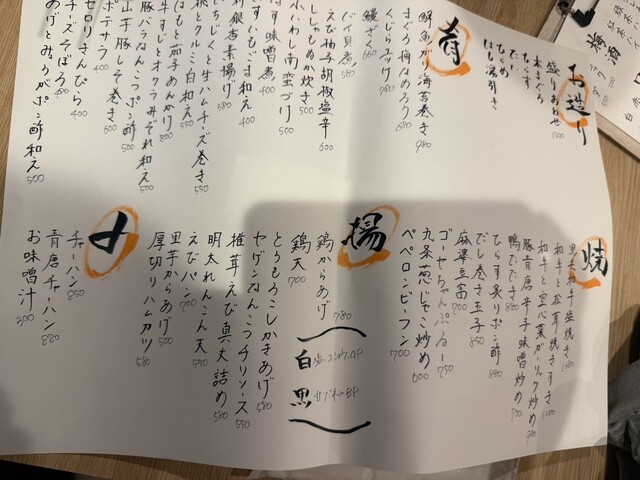 お造り
盛り合わせ
本まぐろ
はも湯引き
肴
鯛魚ガリ海苔巻き 980
まぐろ梅なめろう 680
くじらユッケ 780
鰻ざく 660
バイ貝煮 580
えび柚子胡椒塩辛 600
ししゃもぬか炊き 500
小いわし南蛮づけ 500
はす味噌煮 400
いちじくと生ハムチーズ巻き 550
桃とクルミ白和え 550
はもと茄子あんかけ 800
牛すじとオクラみぞれ和え 550
豚バラなんこつポン酢 500
山芋豚しそ巻き 600
ポテサラ 400
セロリきんぴら 400
チーズそぼろ 400
あげとみょうがポン酢和え 500
焼
黒毛和牛塩焼き
和牛と松茸焼きすき
和牛と空心菜ガーリック炒め
豚青唐辛子味噌炒め
鴨たたき 880
ひらす炙りポン酢 880
だし巻き玉子 850
麻婆豆腐 700
ゴーヤちゃんぷるー 750
九条葱じゃこ炒め 600
ペペロンビーフン 700
揚
鶏からあげ 780
白
黒
鶏天 700
とうもろこしかきあげ 580
ヤゲンなんこつチリソース 550
椎茸えび真丈詰め 580
明太れんこん天 550
えびパン 700
里芋からあげ 500
厚切りハムカツ 580
〆
チャーハン 850
青唐チャーハン 880
お味噌汁 300
梅酒